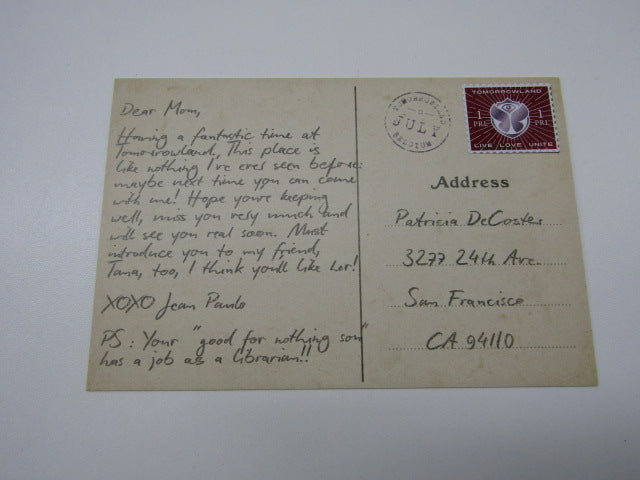 Dear Mom,
Having a fantastic time at
Tomorrowland, This place is
like nothing I've ever seen before:
maybe next time you can come
with me! Hope you're keeping
well, miss you very much and
will see you real soon. Must
introduce you to my friend,
Tana, too, I think you'll like her!
XOXO Jean Paulo
PS: Your "good for nothing son"
has a job as a librarian!!
TOMORROWLAND
JULY
BELGIUM
TOMORROWLAND
1 1
PRL PRL
LIVE LOVE UNITE
Address
Patricia DeCoster
3277 24th Ave.
San Francisco
CA 94110